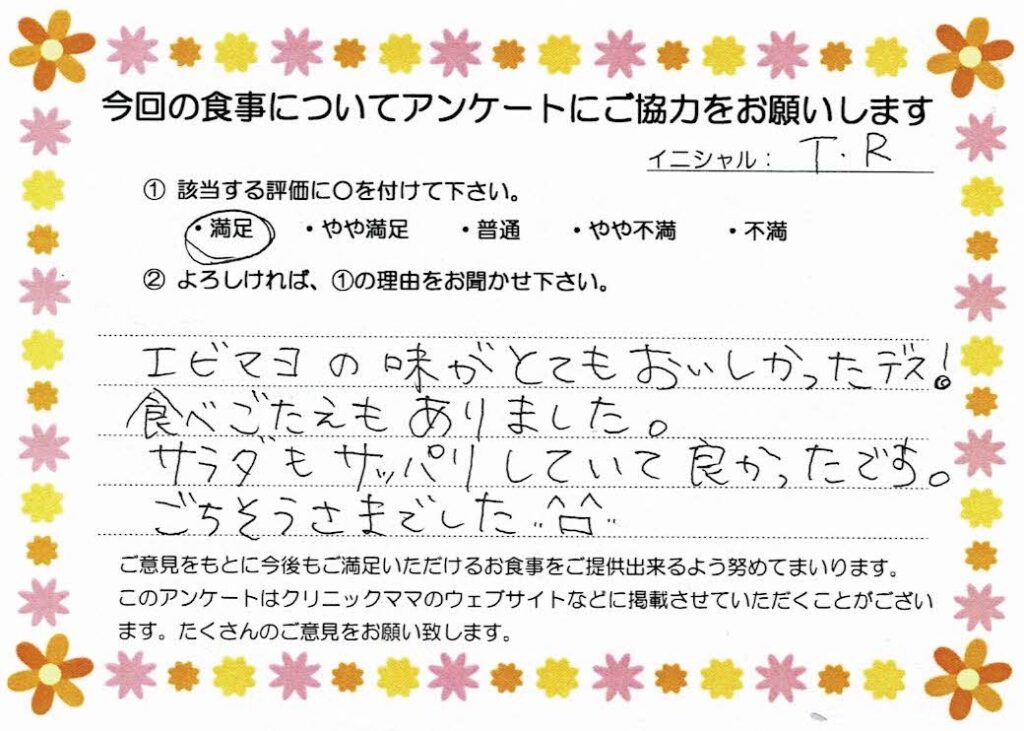 今回の食事についてアンケートにご協力をお願いします
イニシャル： T.R
① 該当する評価に〇を付けて下さい。
・満足 ・やや満足 ・普通 ・やや不満 ・不満
② よろしければ、①の理由をお聞かせ下さい。
エビマヨの味がとてもおいしかったデス！
食べごたえもありました。
サラダもサッパリしていて良かったです。
ごちそうさまでした
ご意見をもとに今後もご満足いただけるお食事をご提供出来るよう努めてまいります。
このアンケートはクリニックママのウェブサイトなどに掲載させていただくことがござい
ます。たくさんのご意見をお願い致します。